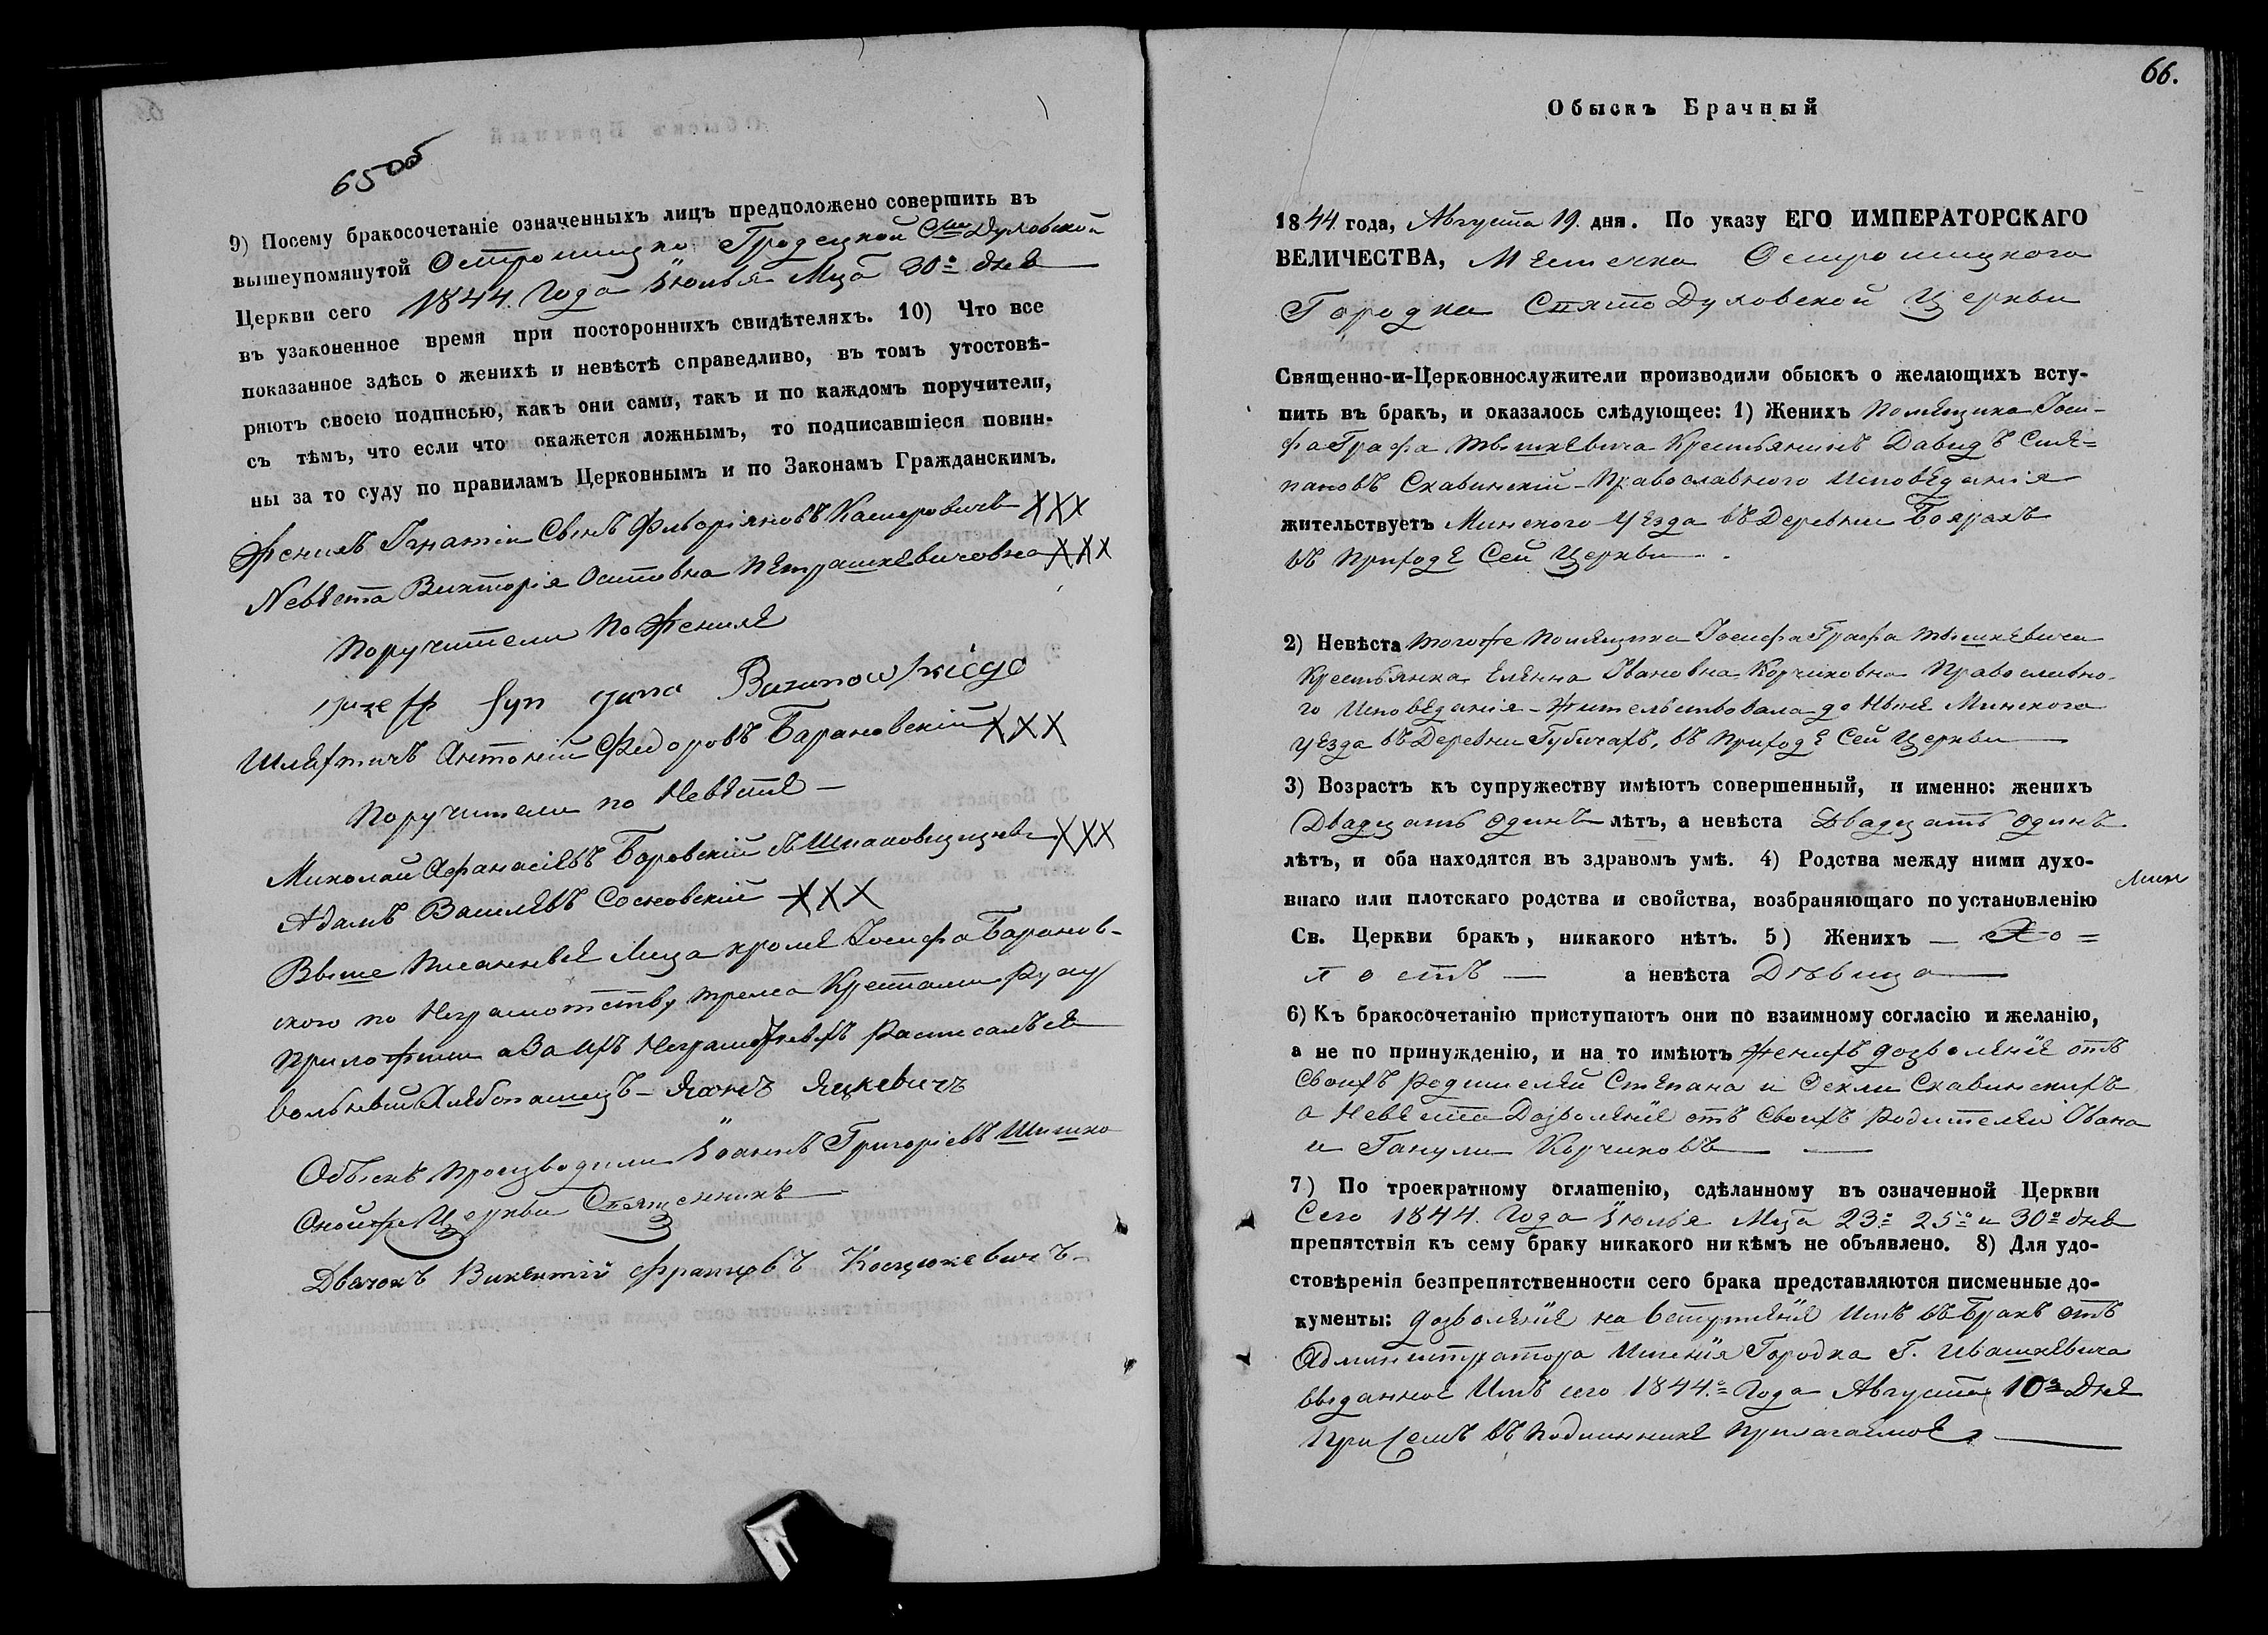 65 об
9) Посему бракосочетаніе означенныхъ лицъ предположено совершить въ
вышеупомянутой Острошицко Гродецкой Сто Духовской
Церкви сего 1844. Года Іюлья Мца 30о дня
въ узаконенное время при постороннихъ свидѣтеляхъ. 10) Что все
показанное здѣсь о женихѣ и невѣстѣ справедливо, въ томъ утостовѣ-
ряютъ своею подписью, какъ они сами, такъ и по каждомъ поручители,
съ тѣмъ, что если что окажется ложнымъ, то подписавшіеся повин-
ны за то суду по правиламъ Церковнымъ и по Законамъ Гражданскимъ.
Женихъ Игнатій Сынъ Фльоріяновъ Касперовичъ ХХХ
Невѣста Викторія Оситовна Петрашкевичовна ХХХ
Поручители По Женихѣ
syn Jana Baranowskiego
Шляхтичъ Антоній Федоровъ Барановскій ХХХ
Поручители по Невѣстѣ —
Миколай Афанасіевъ Боровскій ХХХ
Адамъ Васілевъ Сосновскій ХХХ
Выше Писанныя Лица кромѣ Іосифа Баранов-
ского по Неграмотству тремя Крестами Руку
Приложили а За ихъ Неграмотныхъ Расписалься
вольный Хлѣбопашецъ - Янъ Яцкевичъ
Обыскъ Производили Іоаннъ Григоріевъ Шишко
Оной же Церкви Священникъ
Дьячокъ Викентій Францовъ Костюкевичъ
66.
Обыскъ Брачный
1844 года, Августа 19. дня. По указу ЕГО ИМПЕРАТОРСКАГО
ВЕЛИЧЕСТВА, Мѣстечка Острошицкого
Городка Свято Духовской Церкви
Священно-и-Церковнослужители производили обыскъ о желающихъ всту-
пить въ бракъ, и оказалось слѣдующее: 1) Женихъ Помѣщика Іоси-
фа Графа Тышкевича Крестьянинъ Давидъ Сте-
пановъ Скавинскій - Православного Исповѣданія
жительствуетъ Минского Уезда въ Деревни Боярахъ
въ Приходѣ Сей Церкви
2) Невѣста тогоже Помѣщика Іосифа Графа Тышкевича
Крестьянка Елѣнна Ивановна Корчиковна Православно-
го Исповѣданія - Жительствовала до Нынѣ Минского
уѣзда въ Деревни Губичахъ, въ Приходѣ Сей Церкви
3) Возрастъ къ супружеству имѣютъ совершенный, и именно: женихъ
Двадцать одинъ лѣтъ, а невѣста Двадцать одинъ
лѣтъ, и оба находятся въ здравомъ умѣ. 4) Родства между ними духо-
внаго или плотскаго родства и свойства, возбраняющаго по установленію
Св. Церкви бракъ, никакого нѣтъ. 5) Женихъ — Хо=
лостъ — а невѣста Дѣвица
6) Къ бракосочетанію приступаютъ они по взаимному согласію и желанію,
а не по принужденію, и на то имѣютъ Женихъ дозволѣніе отъ
Своихъ Родителѣй Степана и Феклы Скавинскихъ
а Невѣста Дозволѣніе отъ Своихъ Родителей Ивана
и Ганули Корчиковъ
7) По троекратному оглашенію, сдѣланному въ означенной Церкви
Сего 1844. Года Іюлья Мца 23о 25о и 30о дня
препятствія къ сему браку никакого ни кѣмъ не объявлено. 8) Для удо-
стовѣренія безпрепятственности сего брака представляются писменные до-
кументы: дозволѣніе на вступлѣніе Имъ въ Бракъ отъ
Администратора Имѣнія Городка Г. Ивашкѣвича
выданное Имъ сего 1844.о Года Августа 10о Дня
При Семъ въ Подлинникѣ Прилагаемое